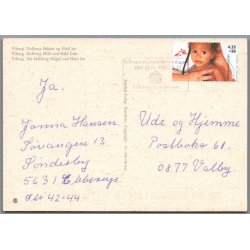 Viborg. Dollerup Bakker og Hald Sø
Viborg. Dollerup Hills and Hald Lake
Viborg. Die Dollerup Hügel und Hald See
4.25
+50
Ja.
Jonna Hansen,
Søvangen 13.
Sønderby
5631 Ebberup.
42-44.
Ude og Hjemme
Postbox 6081.
0877 Valby.